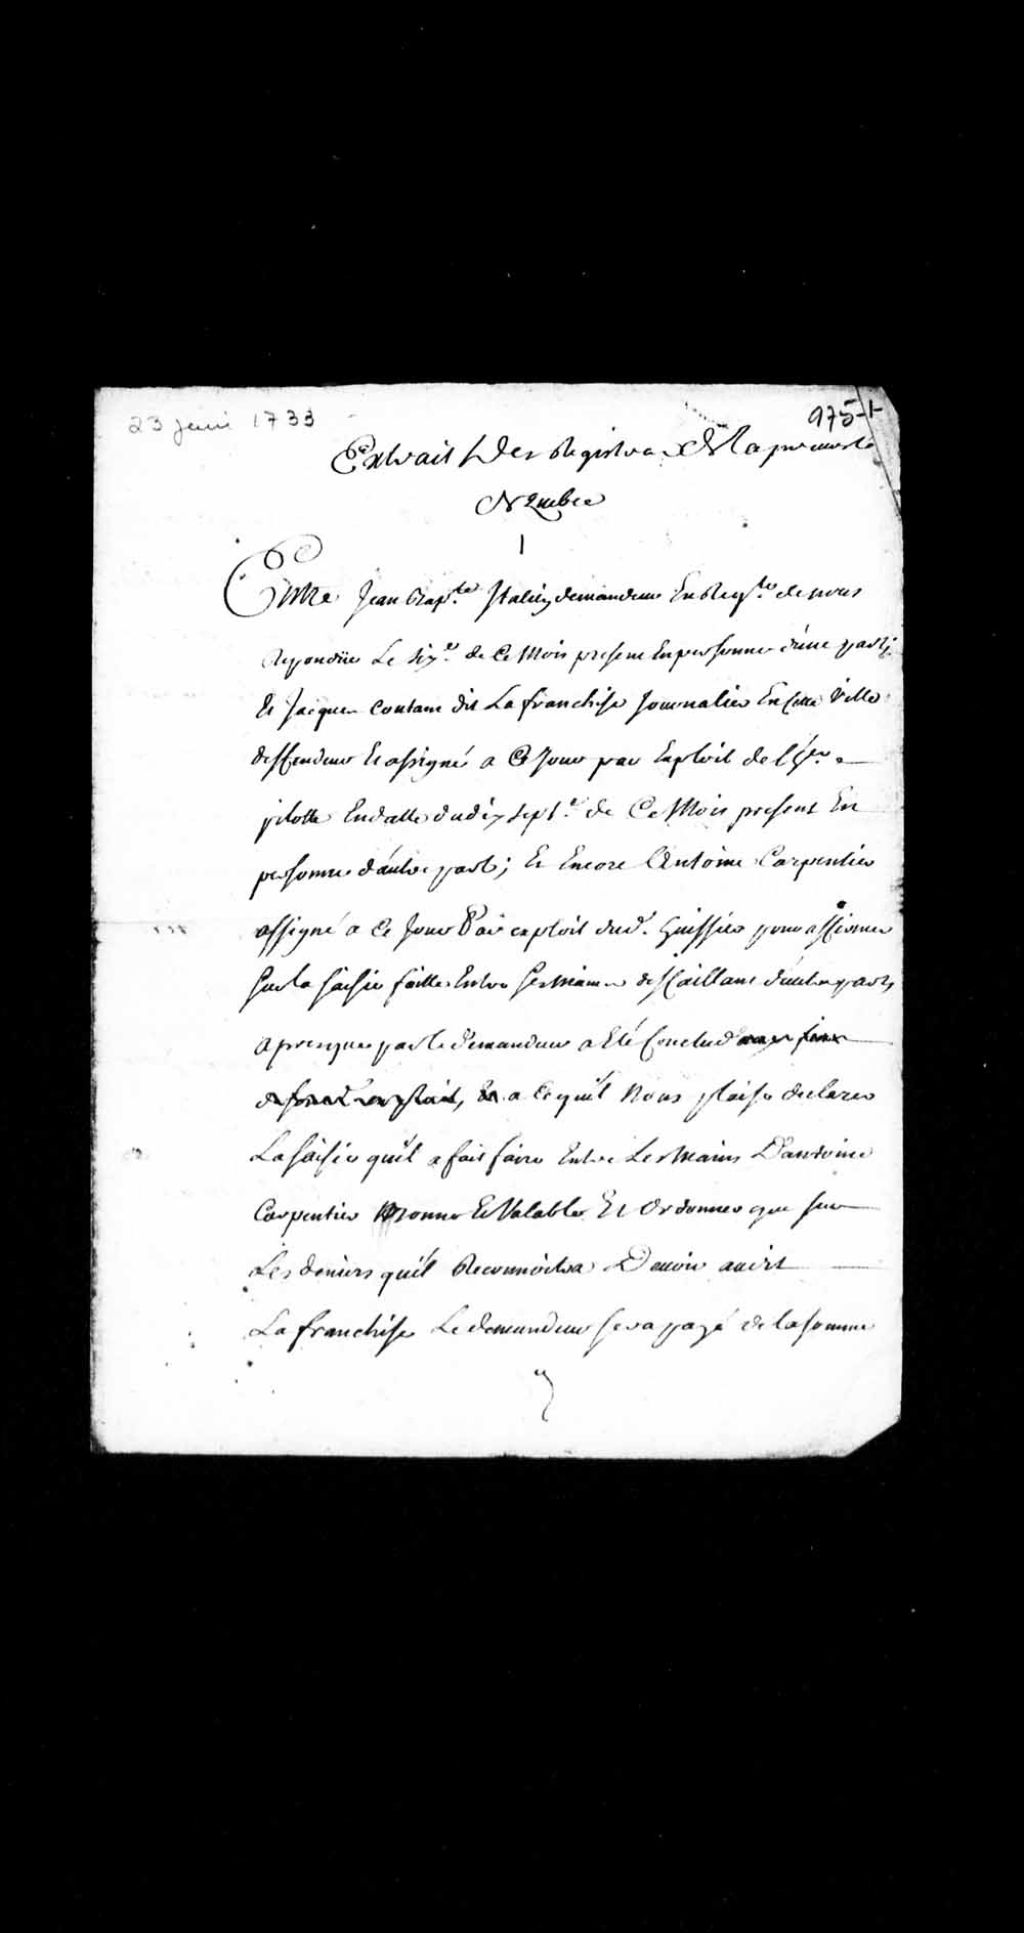 23 juin 1733
975-1
Extrait Des Registres De la prevosté
De Quebec
1
Entre Jean Bap.te demandeur En Req.te de nous
Repondüe Le six.e de Ce Mois present En personne d'une part;
Et Jacques Contant dit La franchise Journalier En Cette Ville
deffendeur Et assigné a Ce Jour par Exploit de
pilotte En datte du dix sept.e de Ce Mois present En
personne d'autre part; Et Encore Antoine Carpentier
assigné a Ce Jour Par exploit dud. huissier pour affirmer
Sur la saisie faitte Entre Ses Mains deffaillant d'autre part,
apres que par le demandeur a Eté Conclud
a Ce quil Nous plaise declarer
La saisie quil a fait faire Entre Les Mains D'antoine
Carpentier Bonne Et Valable Et Ordonner que sur
Les deniers quil Reconnoitra Devoir audit
La franchise Le demandeur sera payé de la somme